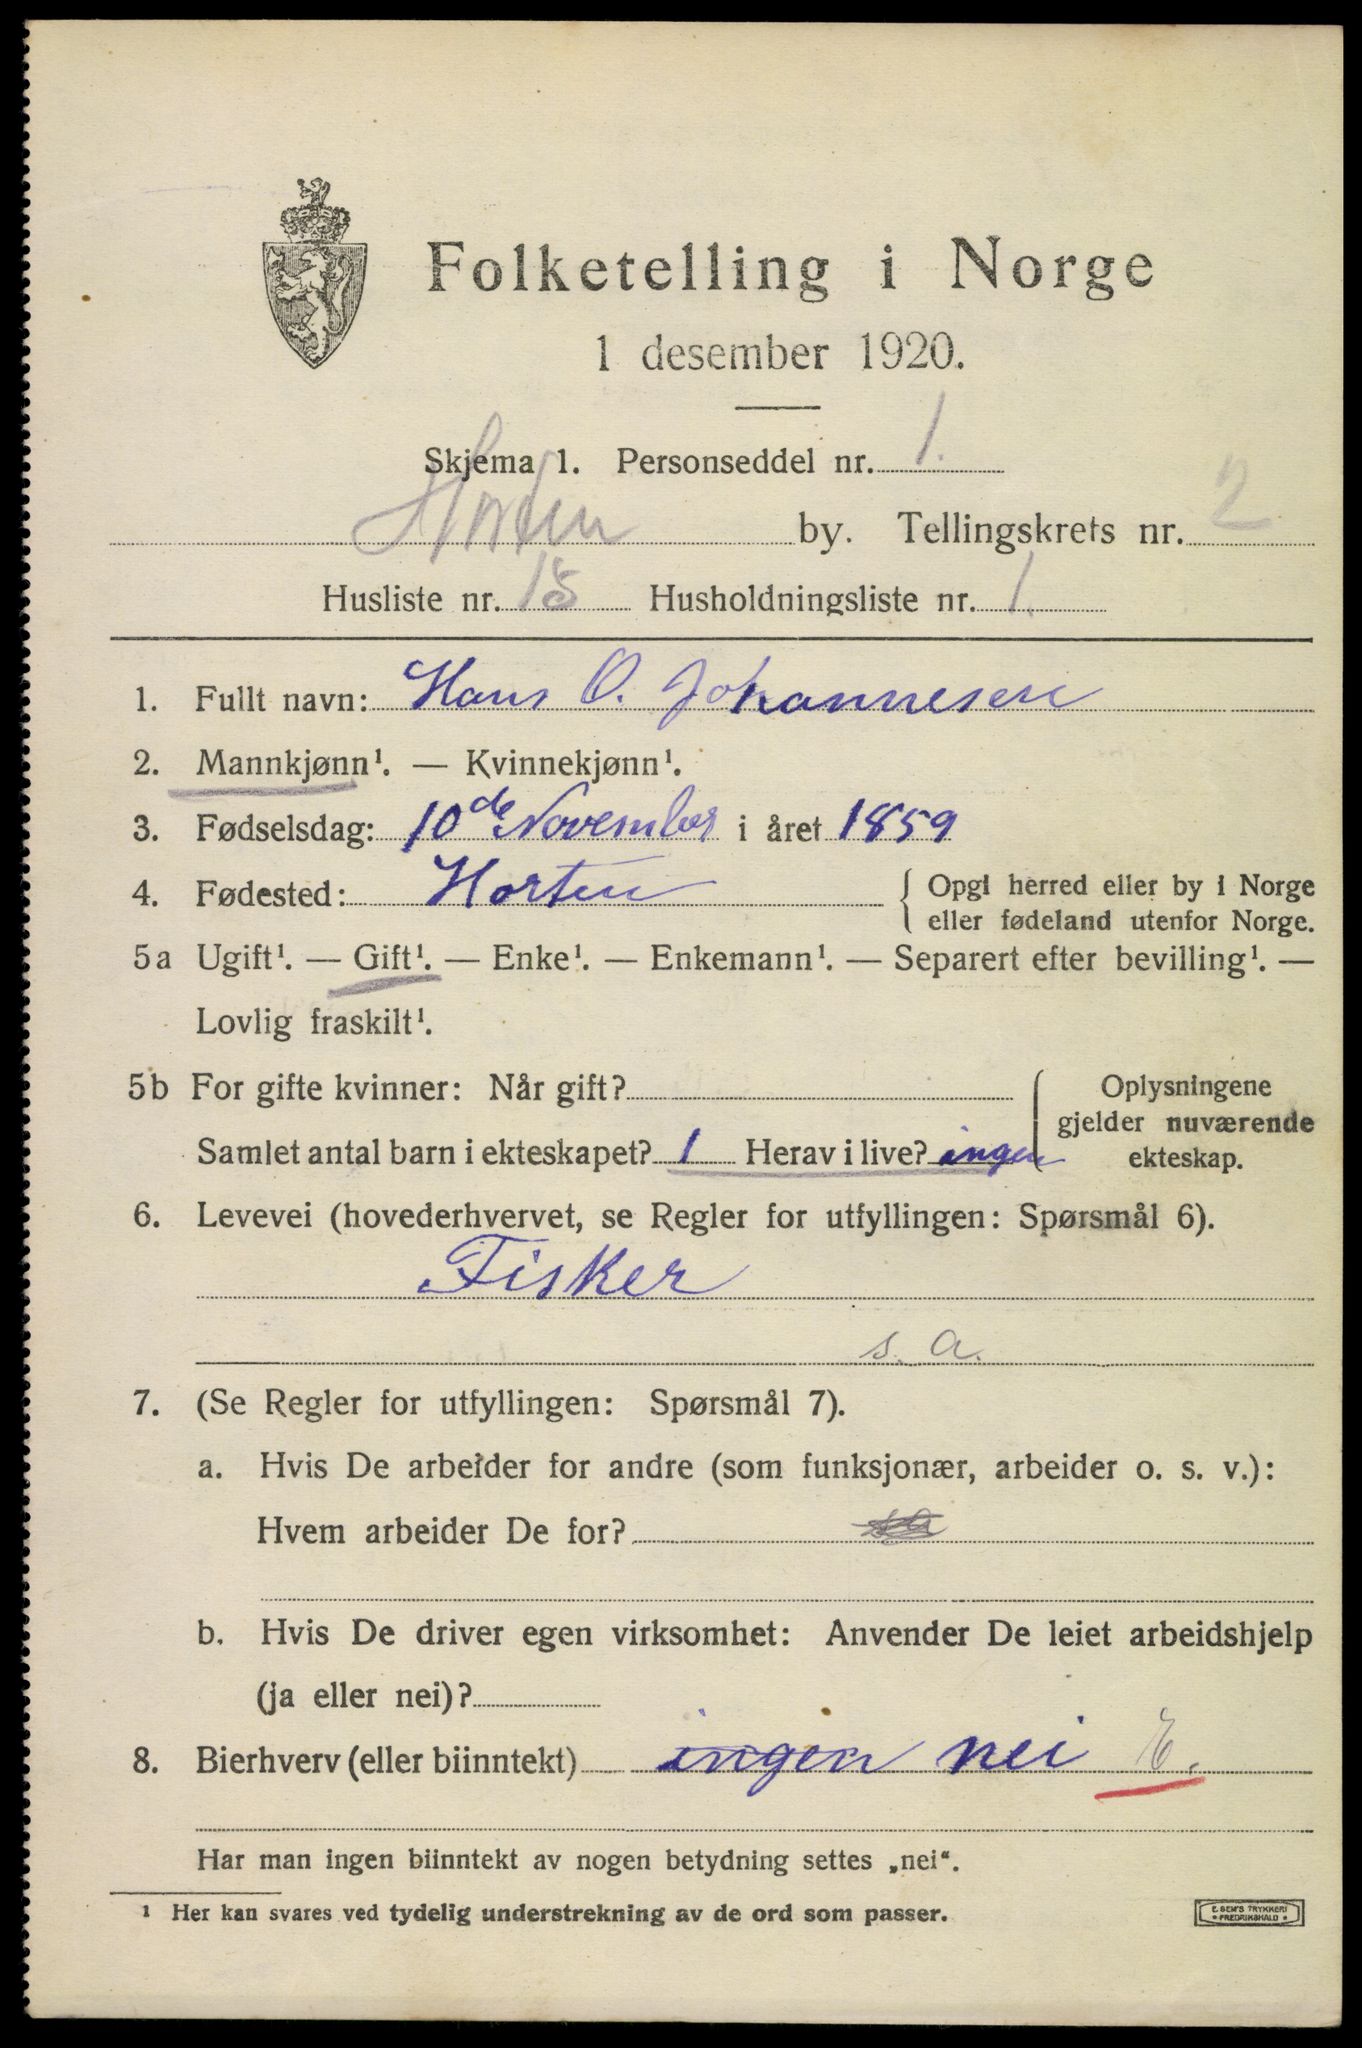 Folketelling i Norge
1 desember 1920.
Skjema 1. Personseddel nr. 1.
Horten by. Tellingskrets nr. 2
Husliste nr. 18 Husholdningsliste nr. 1.
1. Fullt navn: Hans O. Johannesen
2. Mannkjønn¹. — Kvinnekjønn¹.
3. Fødselsdag: 10de November i året 1859
4. Fødested: Horten { Opgi herred eller by i Norge
eller fødeland utenfor Norge.
5a Ugift¹. — Gift¹. — Enke¹. — Enkemann¹. — Separert efter bevilling¹. —
Lovlig fraskilt¹.
5b For gifte kvinner: Når gift? Oplysningene
gjelder nuværende
Samlet antal barn i ekteskapet? 1 Herav i live? ingen ekteskap.
6. Levevei (hovederhvervet, se Regler for utfyllingen: Spørsmål 6).
Fisker
s. a.
7. (Se Regler for utfyllingen: Spørsmål 7).
a. Hvis De arbeider for andre (som funksjonær, arbeider o. s. v.):
Hvem arbeider De for?
b. Hvis De driver egen virksomhet: Anvender De leiet arbeidshjelp
(ja eller nei)?
8. Bierhverv (eller biinntekt) ingen nei E.
Har man ingen biinntekt av nogen betydning settes „nei“.
¹ Her kan svares ved tydelig understrekning av de ord som passer.
E. SEM'S TRYKKERI
• FREDRIKSHALD •